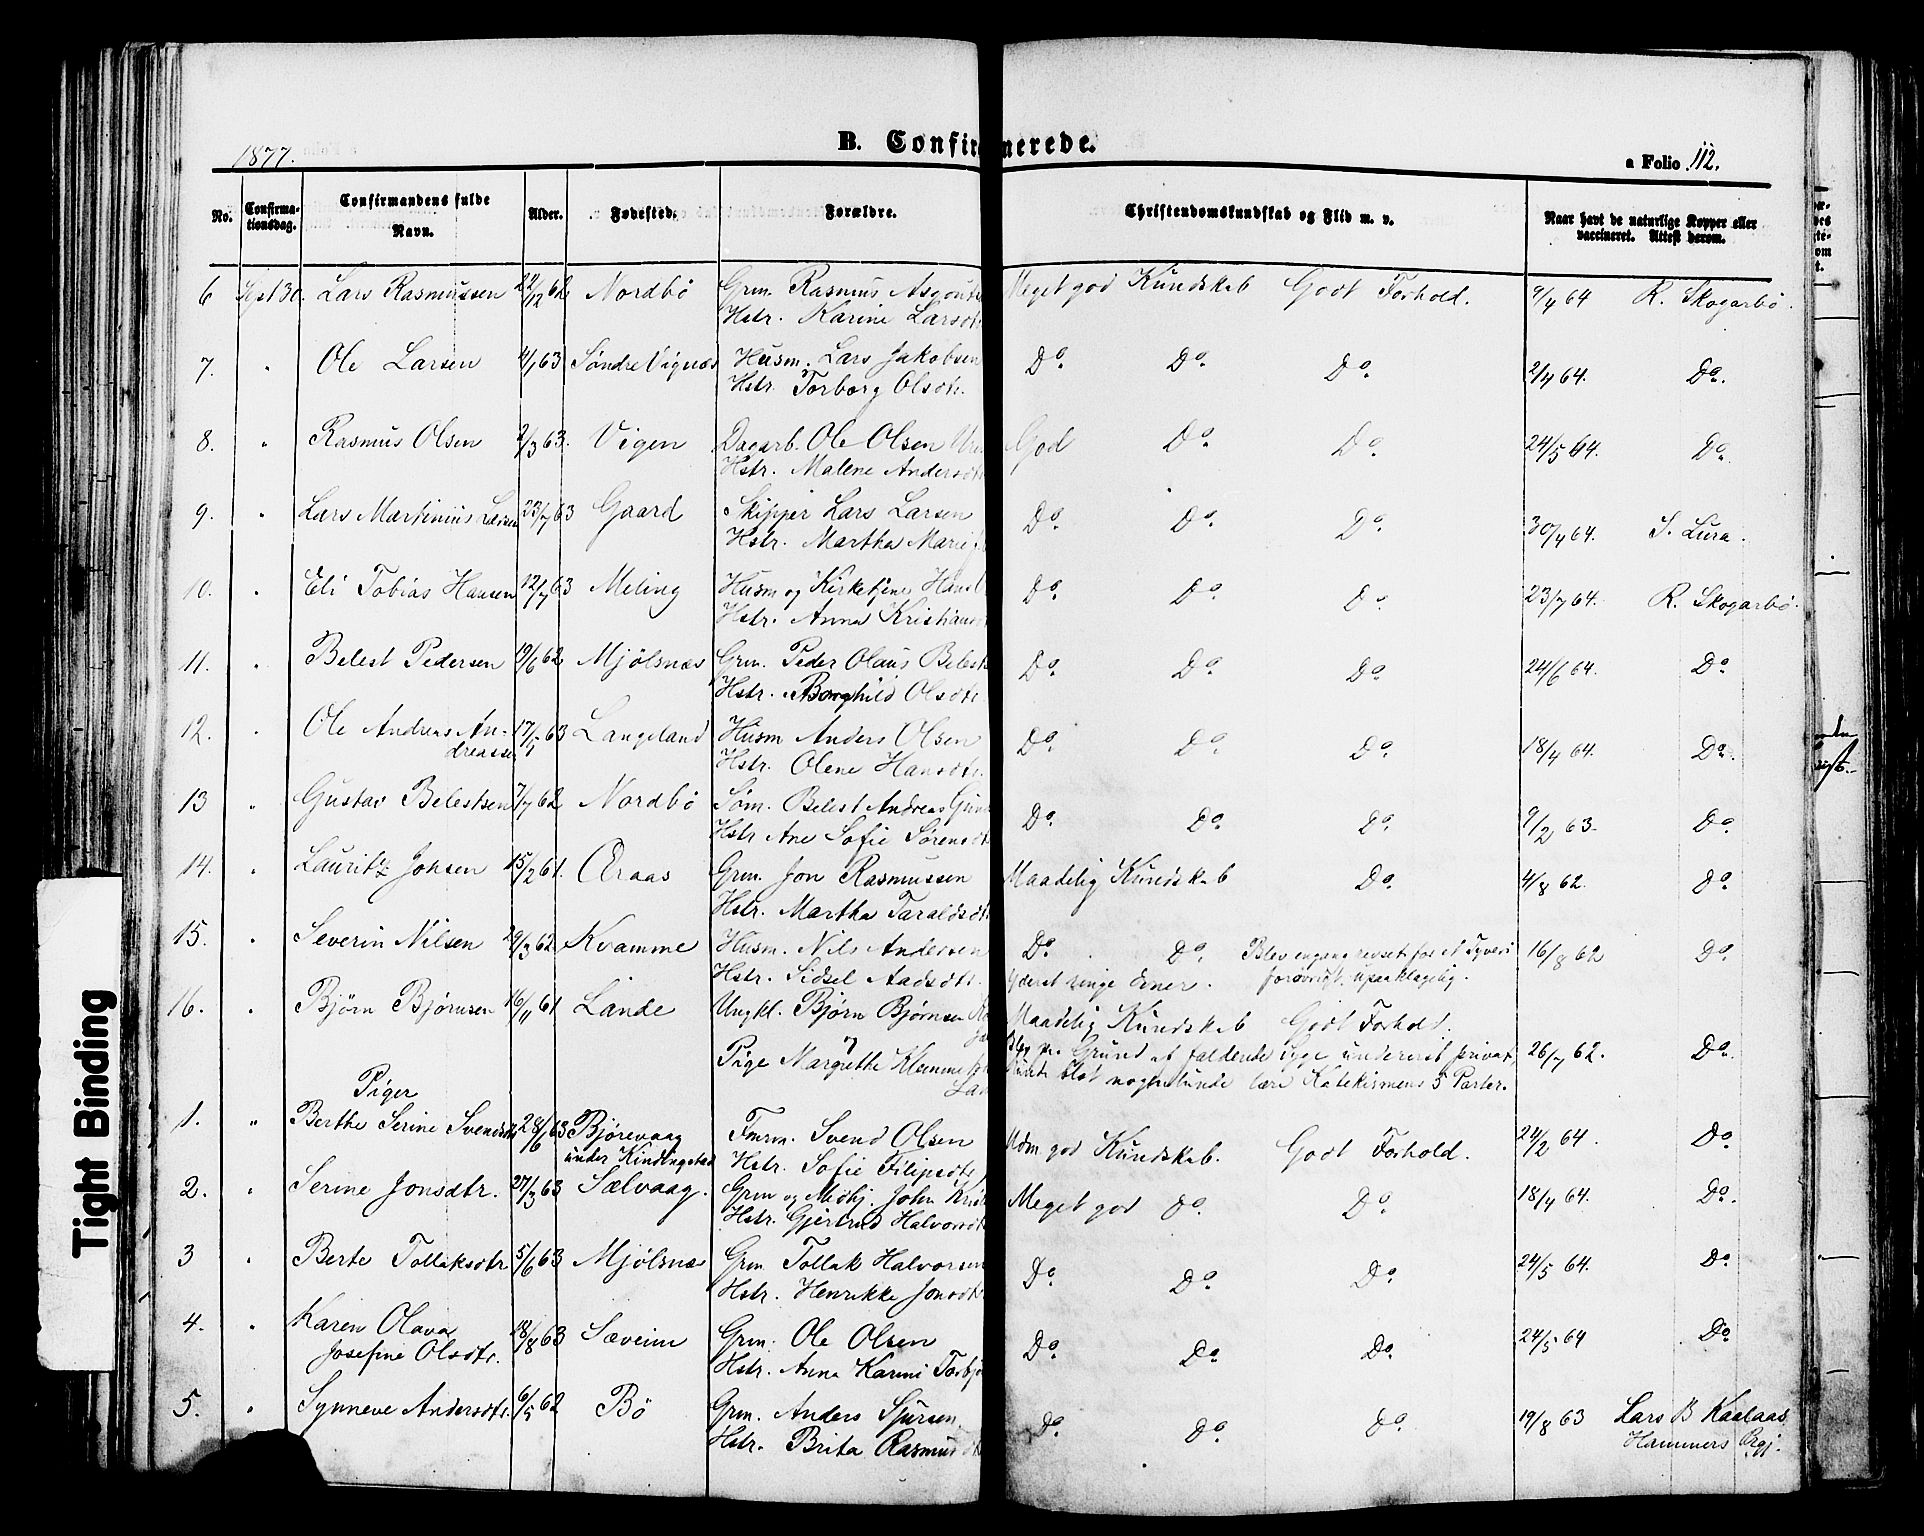 1877.
B. Confirmerede.
a Folio 112.
No.
Confirma-
tionsdag.
Confirmandens fulde
Navn.
Alder.
Fødested.
Forældre.
Christendomskundskab og Flid m. v.
Naar havt de naturlige Kopper eller
vaccineret. Attest derom.
6 Sept 30. Lars Rasmussen 22/12 62 Nordbö Grm. Rasmus Meget god Kundskab Godt Forhold. 9/4 64 R. Skogarbö.
Hstr. Karine Larsdtr
7. " Ole Larsen 4/1 63 Söndre Vignæs Husm. Lars Jakobsen Do. Do. Do. 2/4 64. Do.
Hstr. Torborg Olsdtr.
8. " Rasmus Olsen 2/3 63. Vigen Dagarb. Ole Olsen God Do. Do. 24/5 64. Do.
Hstr. Malene Andersdtr
9. " Lars Martinius Larsen 23/7 63 Gaard Skipper Lars Larsen Do. Do. Do. 30/4 64. S. Lura.
Hstr. Martha Marie
10. " Eli Tobias Hansen 12/7 63 Meling Husm og Kirketjener Hans Do. Do. Do. 23/7 64. R. Skogarbö.
Hstr. Anna Kristians
11. " Belest Pedersen 19/6 62 Mjölsnæs Grm. Peder Olaus Belest Do. Do. Do. 24/6 64. Do.
Hstr. Borghild Olsdtr.
12. " Ole Andreas An- 17/1 63 Langeland Husm Anders Olsen Do. Do. Do. 18/4 64. Do.
dreassen Hstr. Olene Hansdtr.
13 " Gustav Belestsen 7/7 62 Nordbö Söm. Belest Andreas Do. Do. Do. 9/2 63. Do.
Hstr Ane Sofie Sörensdtr
14. " Lauritz Johsen 15/2 61. Araas Grm. Jon Rasmussen Maadelig Kundskab Do. 4/8 62. Do.
Hstr. Martha Taraldsdtr
15. " Severin Nilsen 29/3 62 Kvamme Husm. Nils Andersen Do. Do. Blev engang revset for et Tyveri 16/8 62 Do.
Hstr. Sidsel Aadsdtr. Meget ringe Evner. forövrigt upaaklagelig.
16. " Björn Björnsen 16/11 61 Lande Ungkl. Björn Björnsen Maadelig Kundskab Godt Forhold.
Pige Margrethe Blev pa Grund af faldende Syge undervist privat, 26/7 62. Do.
Kunde blot nogenlunde lære Katekismens 5 Parter.
Piger
1. " Berthe Serine Svendsdtr 28/6 63 Björevaag Fmrm. Svend Olsen Udm god Kundskab. Godt Forhold. 24/2 64. Do
under Kindingstad Hstr. Sofie Filipsdtr
2. " Serine Jonsdtr. 27/3 63 Sælvaag. Grm og Medhj. John Meget god Do. Do. 18/4 64. Do.
Hstr. Gjertrud Halvorsdtr
3 " Berte Tollaksdtr 5/6 63 Mjölsnæs Grm. Tollak Halvorsen Do. Do. Do. 24/5 64. Do.
Hstr. Henrikke Jonsdtr
4. " Karen Olava 18/8 63 Sæveim Grm. Ole Olsen Do. Do. Do. 24/5 64 Do.
Josefine Olsdtr. Hstr. Anna Karine Torbj
5. " Synneve Andersdtr. 6/5 62 Bö Grm. Anders Sjursen Do. Do. Do. 19/8 63 Lars B Kaalaas
Hstr. Brita Rasmusdtr Hammers Prgj.
Tight Binding